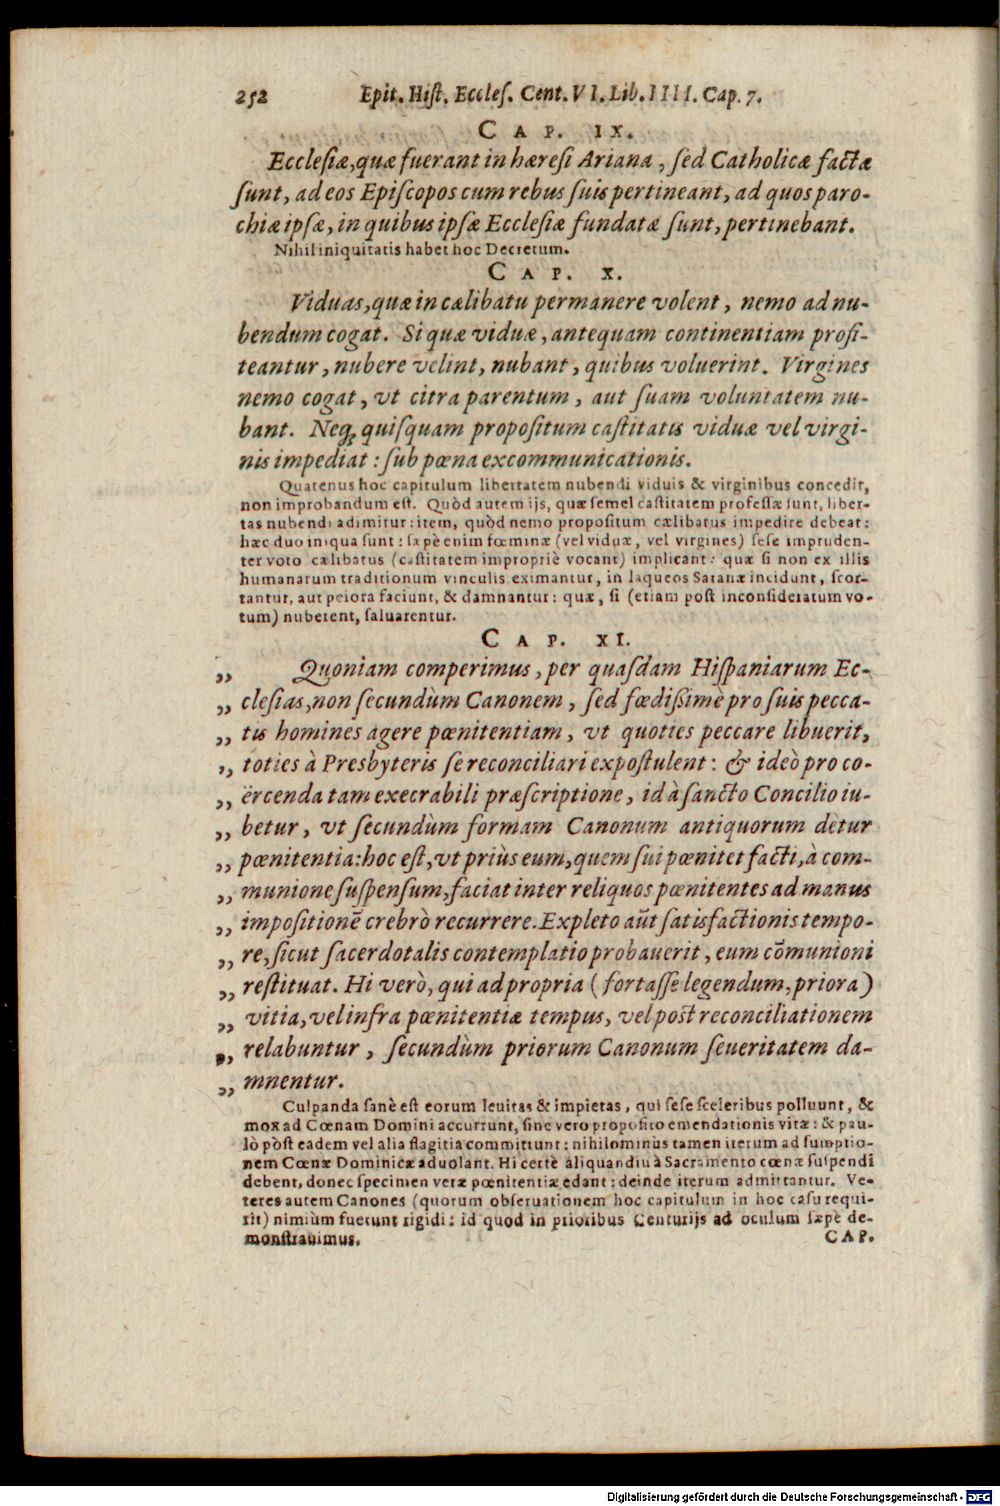 252 Epit. Hiſt. Eccleſ. Cent. VI. Lib. IIII. Cap. 7.
CAP. IX.
Eccleſiæ, quæ fuerant in hæreſi Ariana, ſed Catholicæ factæ
ſunt, ad eos Epiſcopos cum rebus ſuis pertineant, ad quos paro-
chiæ ipſæ, in quibus ipſæ Eccleſiæ fundatæ ſunt, pertinebant.
Nihil iniquitatis habet hoc Decretum.
CAP. X.
Viduas, quæ in cælibatu permanere volent, nemo ad nu-
bendum cogat. Si quæ viduæ, antequam continentiam profi-
teantur, nubere velint, nubant, quibus voluerint. Virgines
nemo cogat, vt citra parentum, aut ſuam voluntatem nu-
bant. Neq; quiſquam propoſitum caſtitatis viduæ vel virgi-
nis impediat: ſub pœna excommunicationis.
Quatenus hoc capitulum libertatem nubendi viduis & virginibus concedit,
non improbandum eſt. Quòd autem ijs, quæ ſemel caſtitatem profeſſæ ſunt, liber-
tas nubendi adimitur: item, quòd nemo propoſitum cælibatus impedire debeat:
hæc duo iniqua ſunt: ſæpè enim fœminæ (vel viduæ, vel virgines) ſeſe impruden-
ter voto cælibatus (caſtitatem impropriè vocant) implicant: quæ ſi non ex illis
humanarum traditionum vinculis eximantur, in laqueos Satanæ incidunt, ſcor-
tantur, aut peiora faciunt, & damnantur: quæ, ſi (etiam poſt inconſideratum vo-
tum) nuberent, ſaluarentur.
CAP. XI.
„ Quoniam comperimus, per quaſdam Hiſpaniarum Ec-
„ cleſias, non ſecundùm Canonem, ſed fœdiſſimè pro ſuis pecca-
„ tis homines agere pœnitentiam, vt quoties peccare libuerit,
„ toties à Presbyteris ſe reconciliari expoſtulent: & ideò pro co-
„ ërcenda tam execrabili præſcriptione, id à ſancto Concilio iu-
„ betur, vt ſecundùm formam Canonum antiquorum detur
„ pœnitentia: hoc eſt, vt priùs eum, quem ſui pœnitet facti, à com-
„ munione ſuſpenſum, faciat inter reliquos pœnitentes ad manus
„ impoſitionē crebrò recurrere. Expleto aūt ſatisfactionis tempo-
„ re, ſicut ſacerdotalis contemplatio probauerit, eum cōmunioni
„ reſtituat. Hi verò, qui ad propria (fortaſſe legendum, priora)
„ vitia, vel infra pœnitentiæ tempus, vel poſt reconciliationem
„ relabuntur, ſecundùm priorum Canonum ſeueritatem da-
„ mnentur.
Culpanda ſanè eſt eorum leuitas & impietas, qui ſeſe ſceleribus polluunt, &
mox ad Cœnam Domini accurrunt, ſine vero propoſito emendationis vitæ: & pau-
lò pòſt eadem vel alia flagitia committunt: nihilominus tamen iterum ad ſumptio-
nem Cœnæ Dominicæ aduolant. Hi certè aliquandiu à Sacramento cœnæ ſuſpendi
debent, donec ſpecimen veræ pœnitentiæ edant: deinde iterum admittantur. Ve-
teres autem Canones (quorum obſeruationem hoc capitulum in hoc caſu requi-
rit) nimiùm fuerunt rigidi: id quod in prioribus Centurijs ad oculum ſæpè de-
monſtrauimus. CAP.
Digitalisierung gefördert durch die Deutsche Forschungsgemeinschaft - DFG